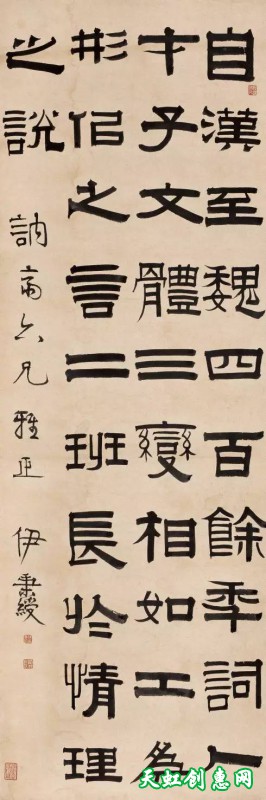 自漢至魏四百餘秊詞人
才子文體三變相如工為
形佀之言二班長於情理
之說
訥斎六兄雅正 伊秉綬
天虹创意网